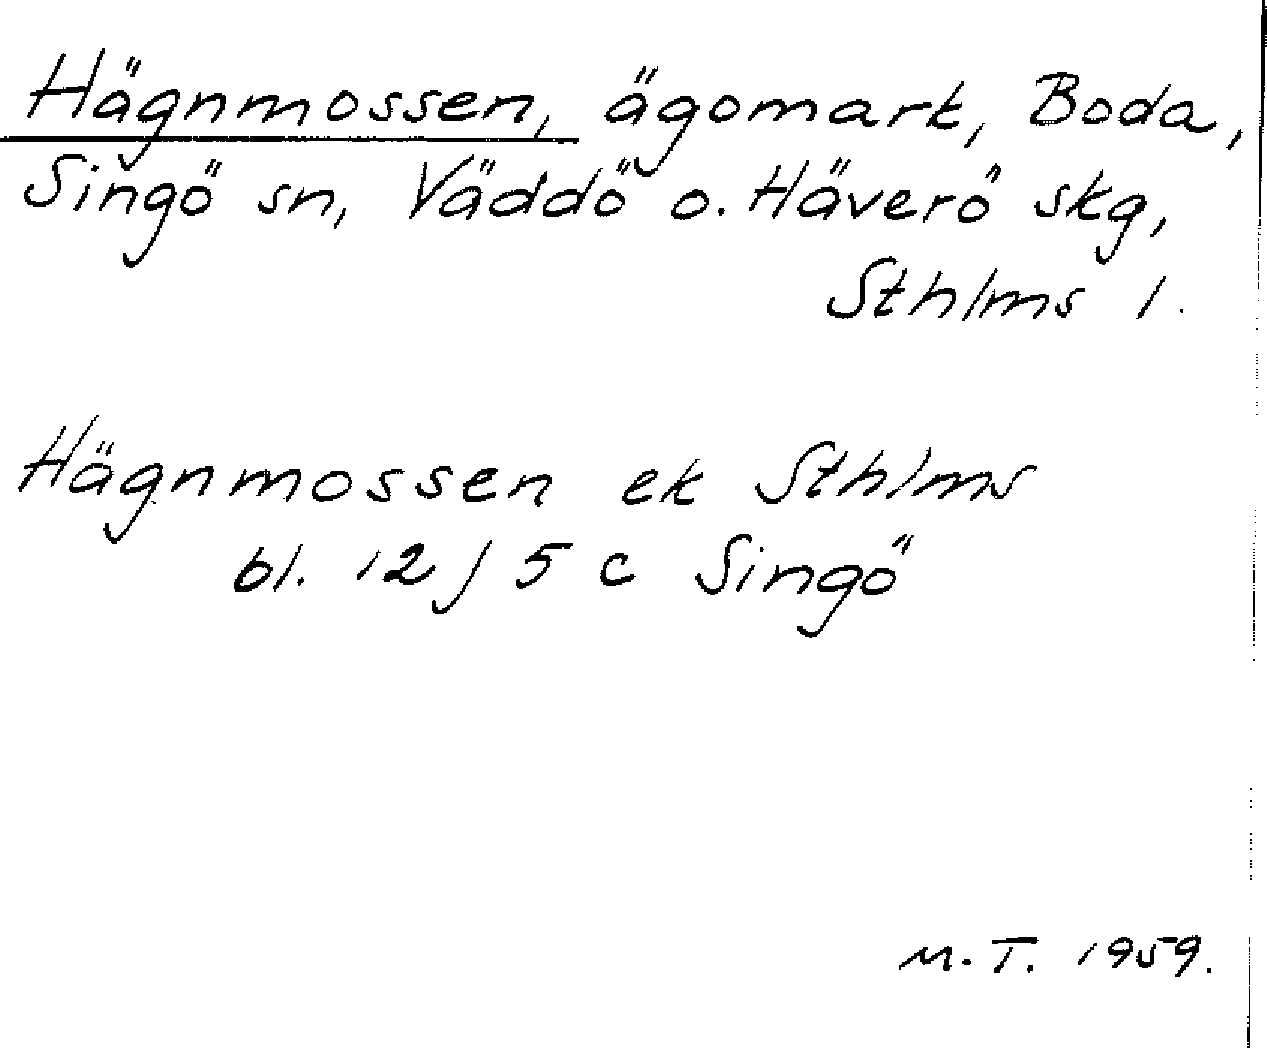 Hägnmossen, ägomark, Boda,
Singö sn, Väddö o. Häverö skg,
Sthlms l.
Hägnmossen ek Sthlms
bl. 12 J 5 c Singö
M.T. 1959.